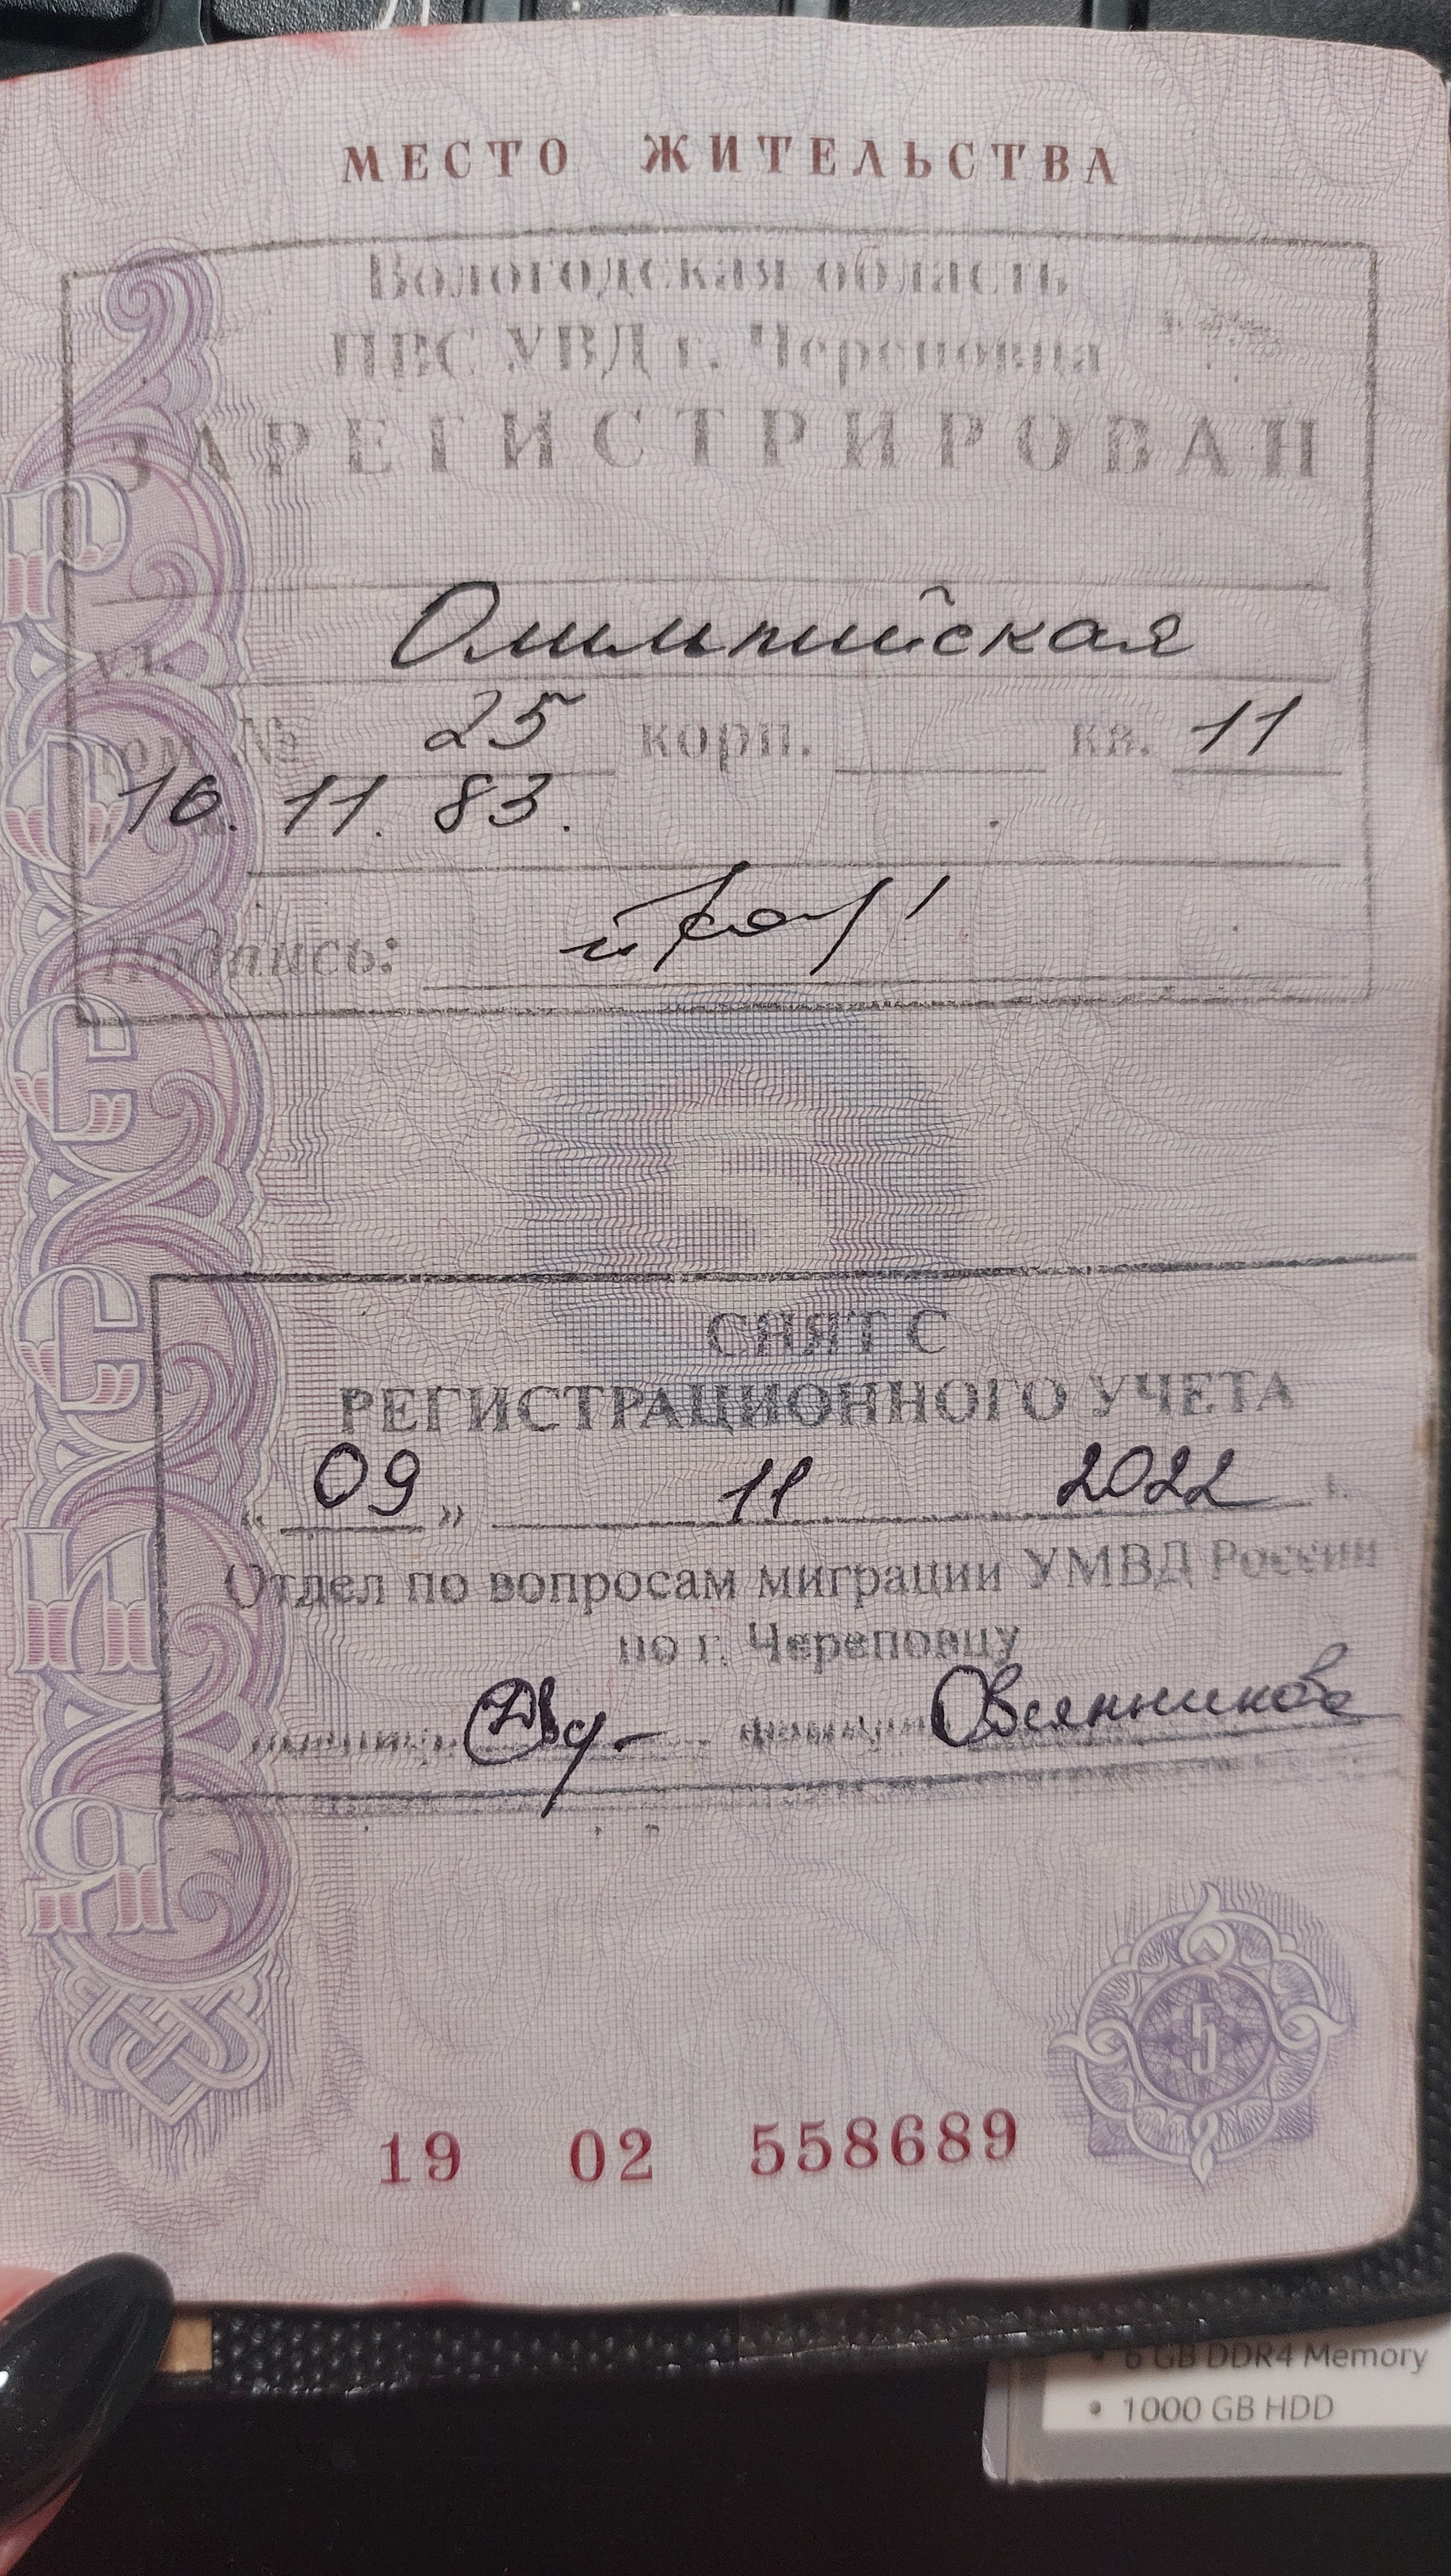 МЕСТО ЖИТЕЛЬСТВА
Вологодская область
ПВС УВД г. Череповца
ЗАРЕГИСТРИРОВАН
ул. Олимпийская
дом № 25 корп. кв. 11
16. 11. 83.
Подпись:
СНЯТ С
РЕГИСТРАЦИОННОГО УЧЕТА
« 09 » 11 2022 г.
Отдел по вопросам миграции УМВД России
по г. Череповцу
Овсянникова
РОССИЯ
5
19 02 558689
6 GB DDR4 Memory
• 1000 GB HDD